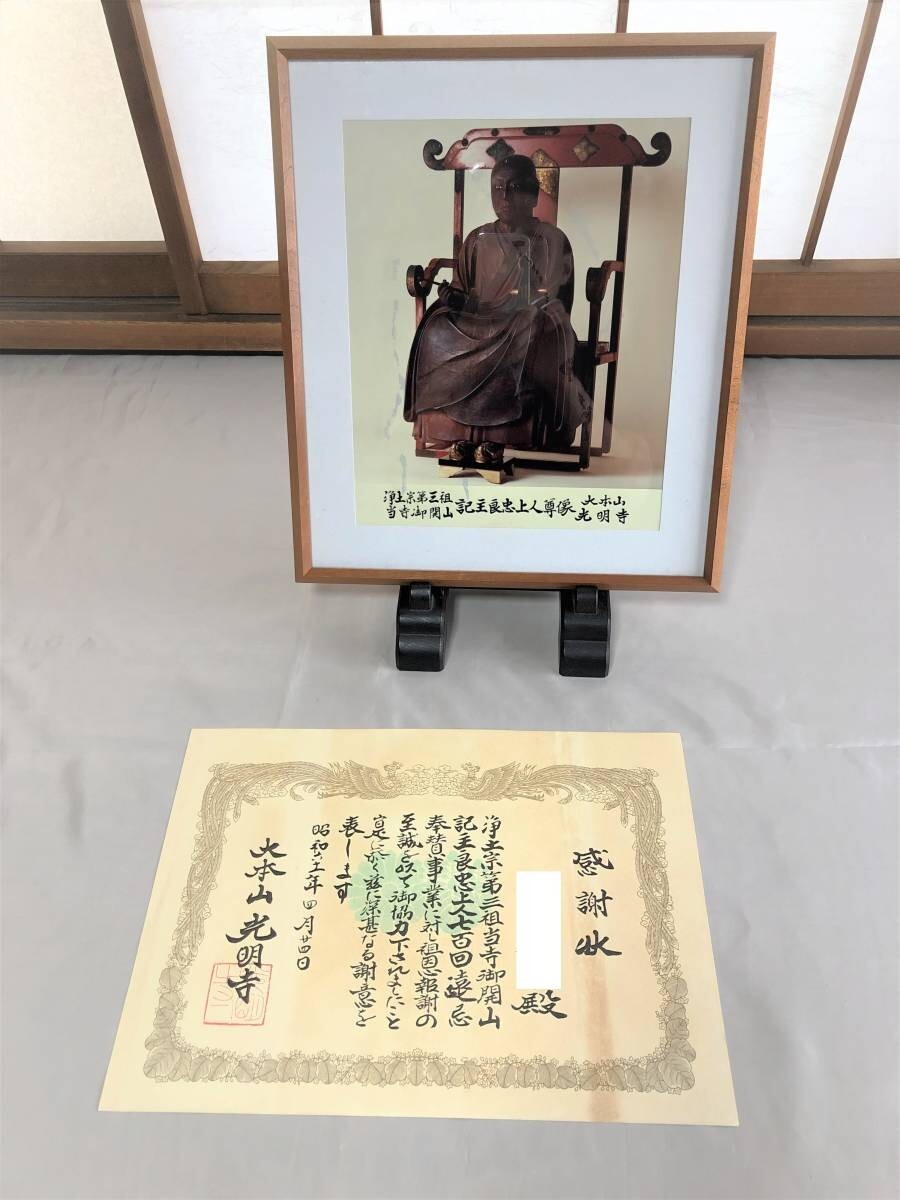 浄土宗第三祖
当寺御開山
記主良忠上人尊像
大本山
光明寺
感謝状
殿
浄土宗第三祖当寺御開山
記主良忠上人七百回遠忌
奉賛事業に対し祖恩報謝の
至誠を以て御協力下されたこと
寔に於く茲に深甚なる謝意を
表します
昭和六十一年四月廿四日
大本山 光明寺